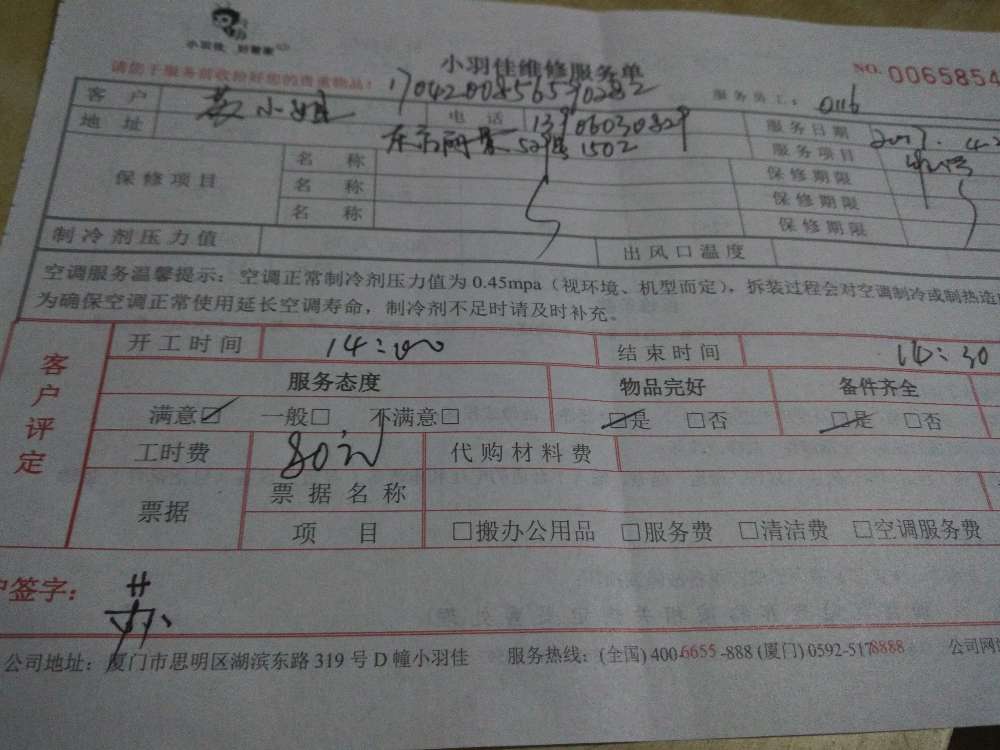 小羽佳 好管家
小羽佳维修服务单
请您于服务前收拾好您的贵重物品!
NO. 0065854
17042008565790282
服务员工: 0116
客户 苏小姐 电话 13906030829 服务日期 2017.4.2
地址 52号1502 服务项目
保修项目 名称 保修期限
名称 保修期限
名称 保修期限
制冷剂压力值 出风口温度
空调服务温馨提示:空调正常制冷剂压力值为0.45mpa(视环境、机型而定),拆装过程会对空调制冷或制热造
为确保空调正常使用延长空调寿命,制冷剂不足时请及时补充。
客户评定
开工时间 14:00 结束时间 14:30
服务态度 物品完好 备件齐全
满意☑ 一般□ 不满意□ ☑是 □否 ☑是 □否
工时费 80元 代购材料费
票据 票据名称
项目 □搬办公用品 □服务费 □清洁费 □空调服务费
户签字: 苏
公司地址:厦门市思明区湖滨东路319号D幢小羽佳 服务热线:(全国)400-6655-888(厦门)0592-5178888 公司网